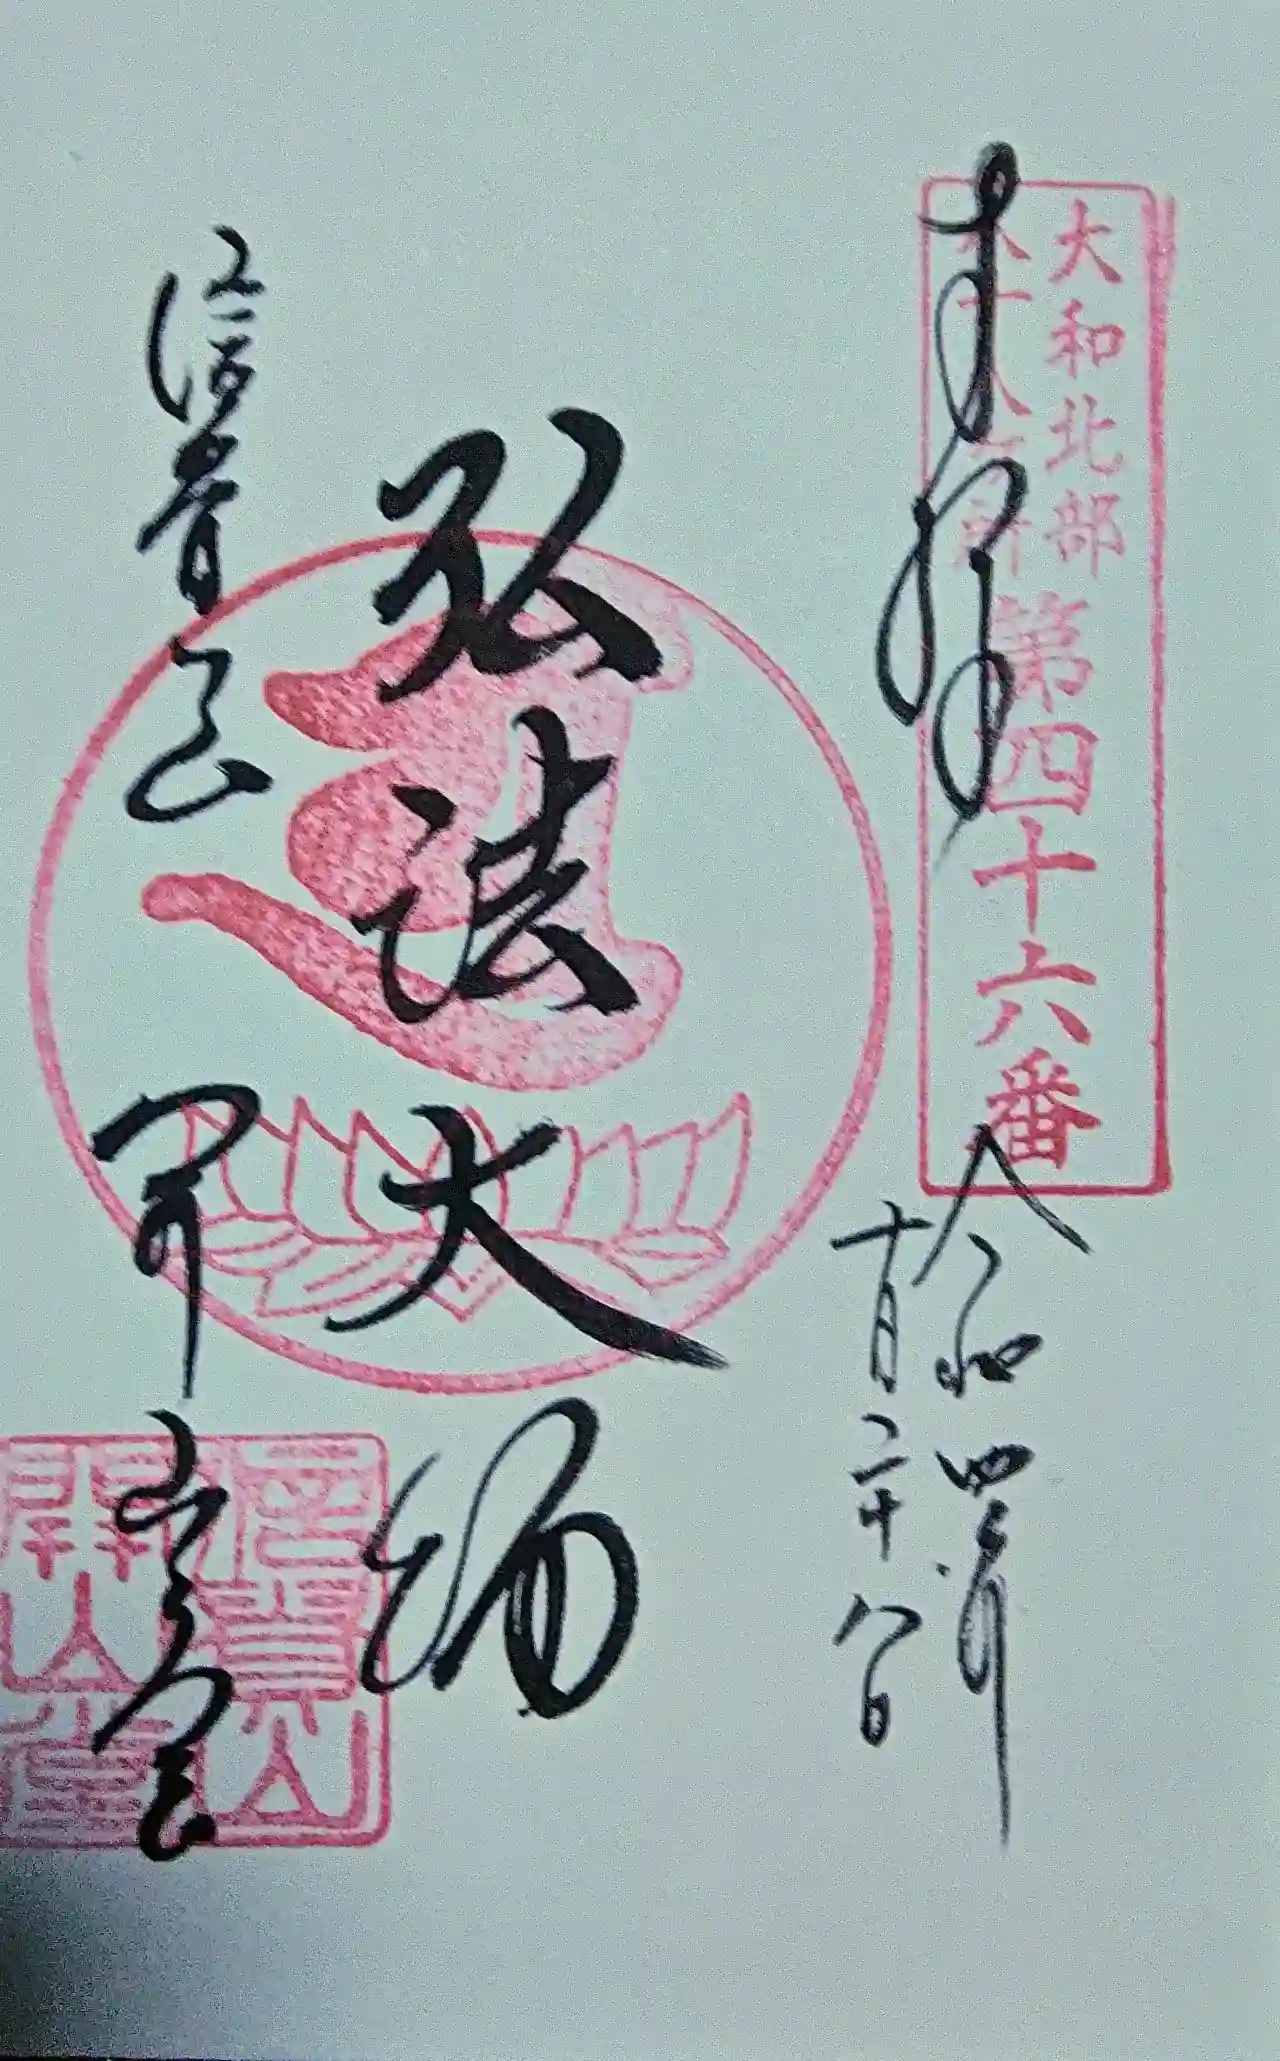 奉拝
大和北部
八十八ヶ所
第四十六番
令和四年
十月二十八日
弘法大師
信貴山
開山堂
信貴山
開山堂